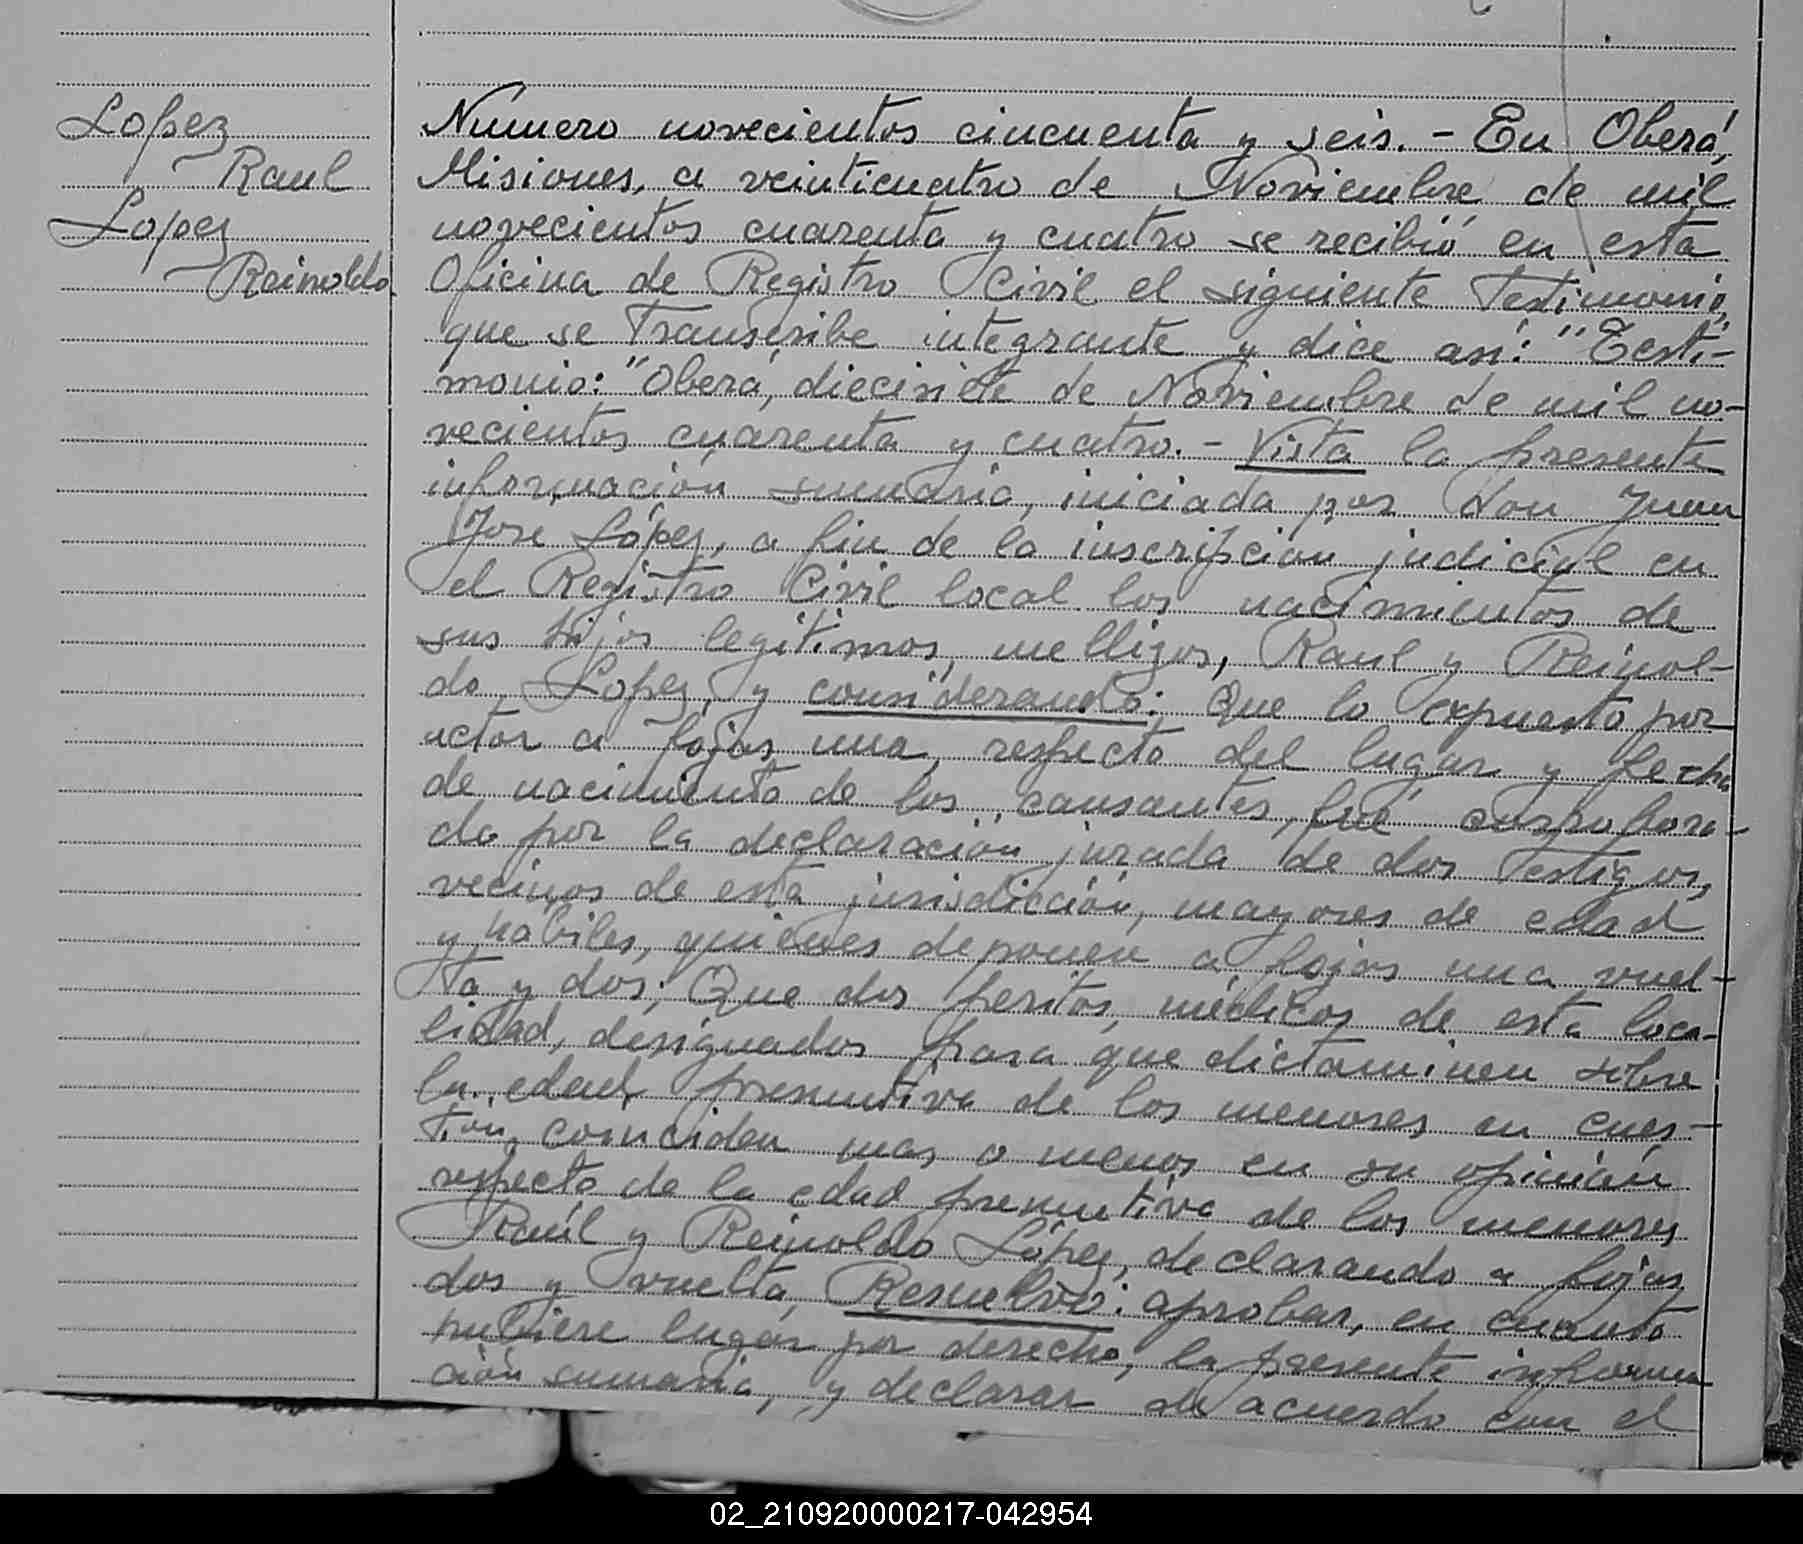 Lopez
Raul
Lopez
Reinoldo.
Número novecientos cincuenta y seis. - En Oberá,
Misiones, a veinticuatro de Noviembre de mil
novecientos cuarenta y cuatro se recibió en esta
Oficina de Registro Civil el siguiente Testimonio,
que se Transcribe integrante y dice así: "Testi-
monio: "Oberá, diecisiete de Noviembre de mil no-
vecientos cuarenta y cuatro. - Vista la presente
información sumaria, iniciada por Don Juan
José López, a fin de la inscripción judicial en
el Registro Civil local los nacimientos de
sus hijos legítimos, mellizos, Raul y Reinol-
do Lopez, y considerando: Que lo expuesto por
actor a fojas una, respecto del lugar y fecha
de nacimiento de los causantes, fué corrobora-
do por la declaración jurada de dos Testigos,
vecinos de esta jurisdicción, mayores de edad
y hábiles, quienes deponen a fojas una vuel-
ta y dos; Que dos peritos, médicos de esta loca-
lidad, designados para que dictaminen sobre
la edad presuntiva de los menores en cues-
tión, coinciden mas o menos en su opinión
respecto de la edad presuntiva de los menores
Raúl y Reinoldo López, declarando a fojas
dos y vuelta, Resuelvo: aprobar, en cuanto
hubiere lugar por derecho, la presente informa
ción sumaria, y declarar de acuerdo con el
02_210920000217-042954